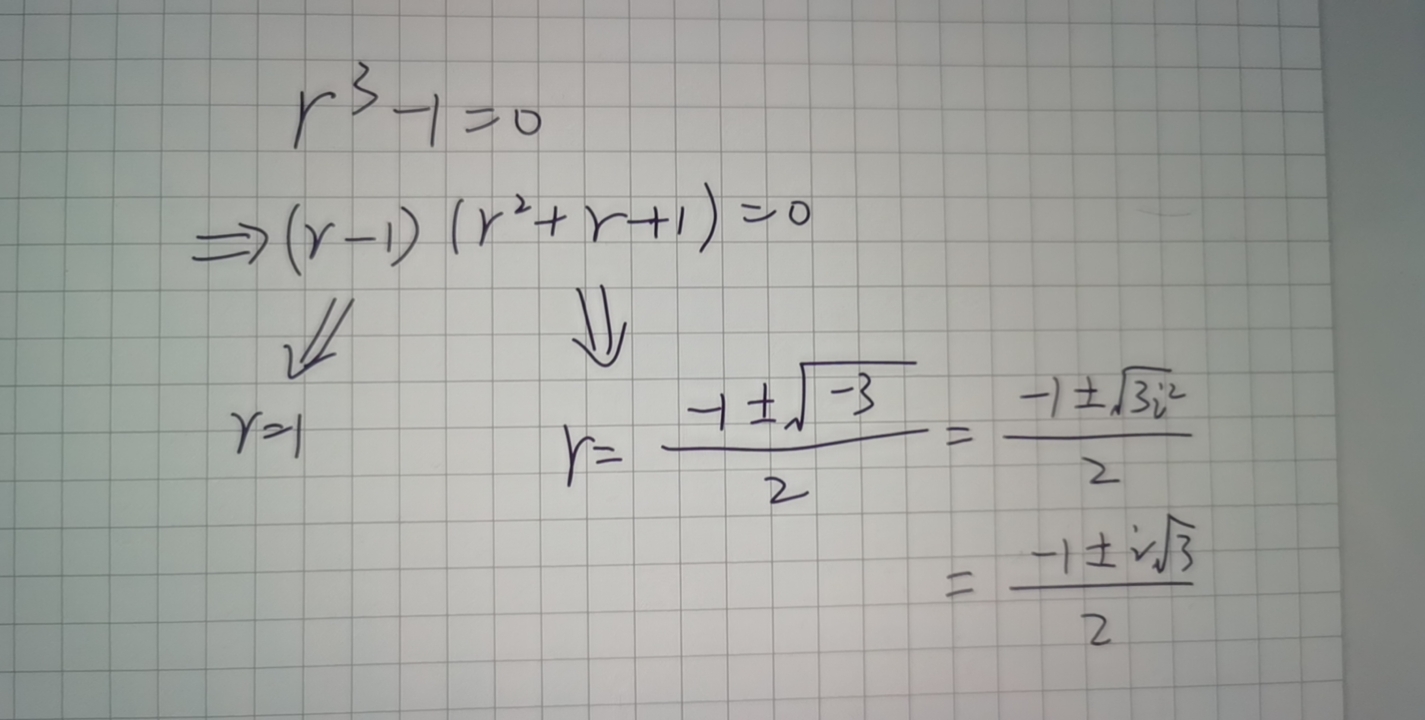 r³-1=0
⇒(r-1)(r²+r+1)=0
⇓ ⇓
r=1 r= (-1±√(-3))/2 = (-1±√(3i²))/2
= (-1±i√3)/2